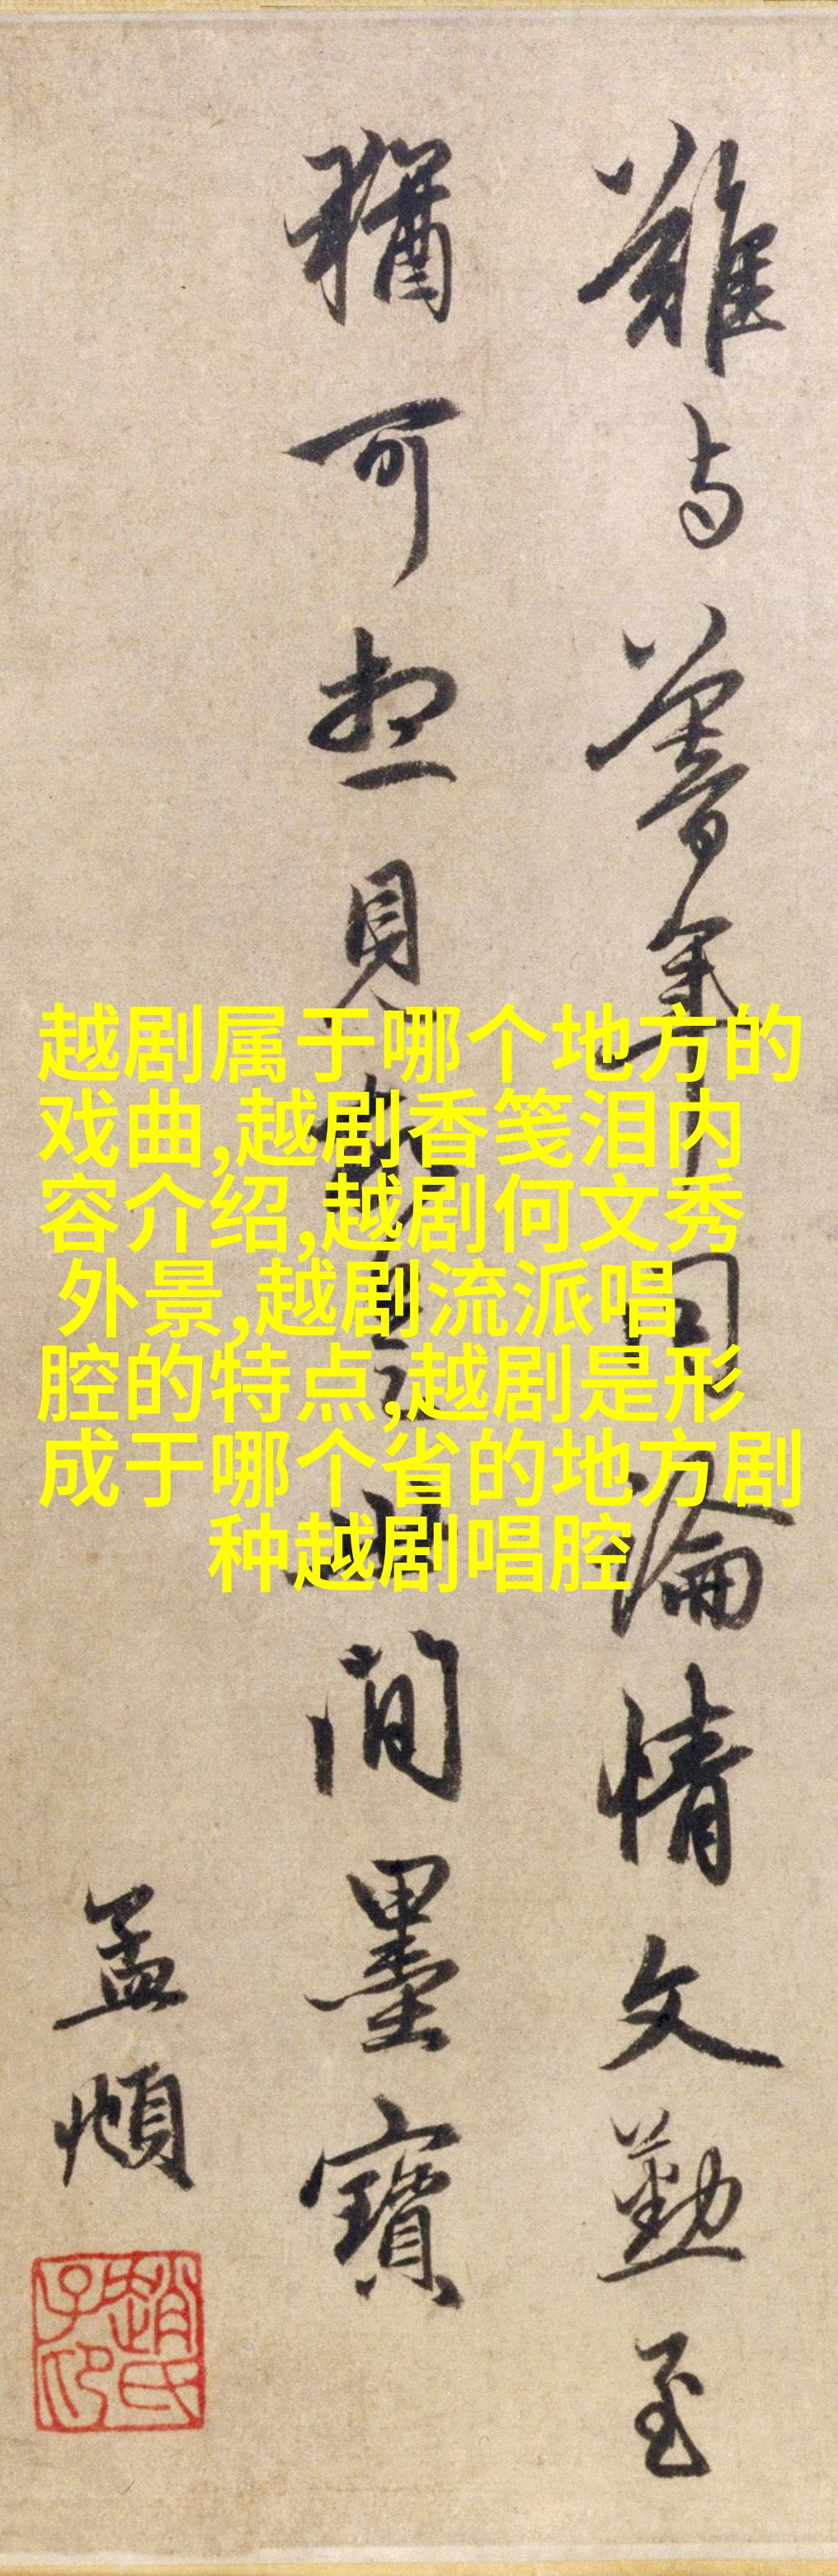 難与暮年同論情文勤至
猶可想見故是世間墨寶
孟頫
趙氏子昂
越剧属于哪个地方的
戏曲,越剧香笺泪内
容介绍,越剧何文秀
外景,越剧流派唱
腔的特点,越剧是形
成于哪个省的地方剧
种越剧唱腔